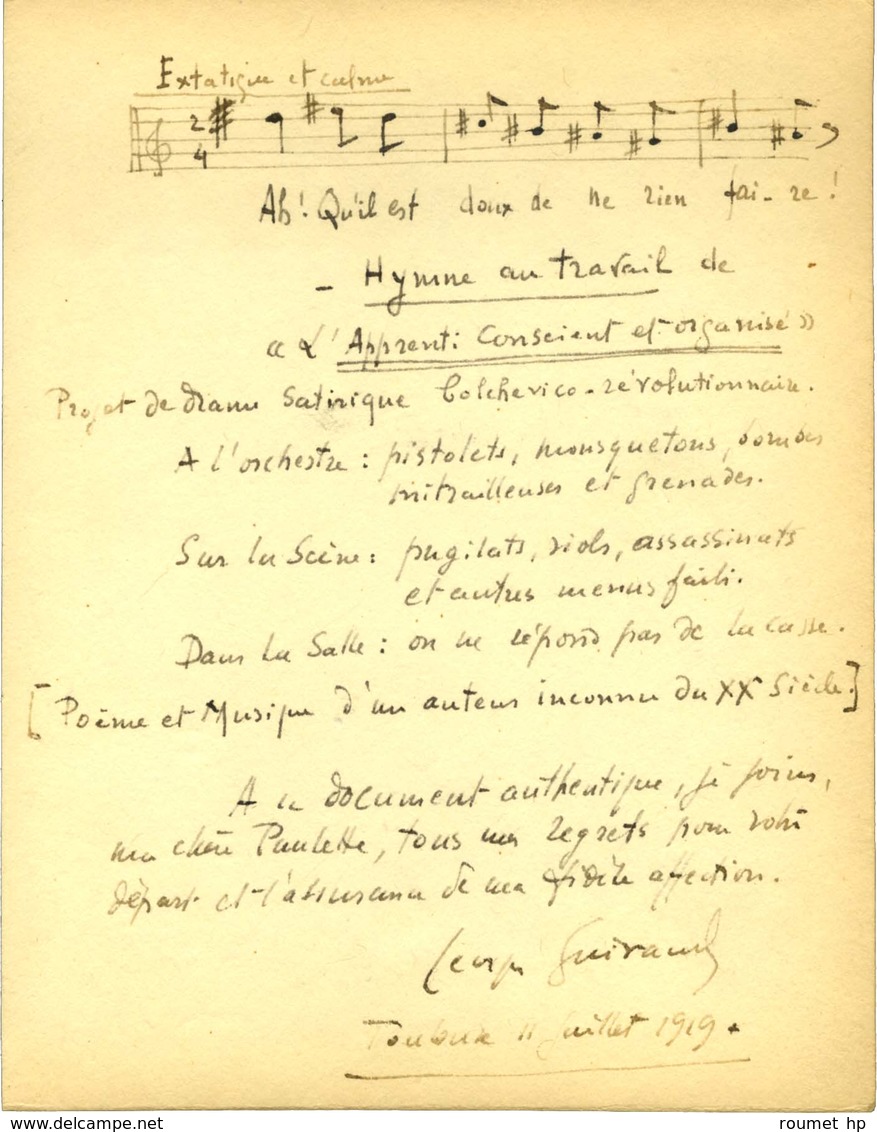 Extatique et calme
2
4
Ah! Qu'il est doux de ne rien fai-re!
- Hymne au travail de -
« L'Apprenti Conscient et organisé »
Projet de drame Satirique bolchevico-révolutionnaire.
A l'orchestre : pistolets, mousquetons, bombes
mitrailleuses et grenades.
Sur la Scène : pugilats, viols, assassinats
et autres menus faits.
Dans la Salle : on ne répond pas de la casse.
[Poème et Musique d'un auteur inconnu du XXe Siècle.]
A ce document authentique, je joins,
ma chère Paulette, tous mes regrets pour votre
départ et l'assurance de ma fidèle affection.
Georges Guiraud
Toulouse 11 Juillet 1919.
roumet hp